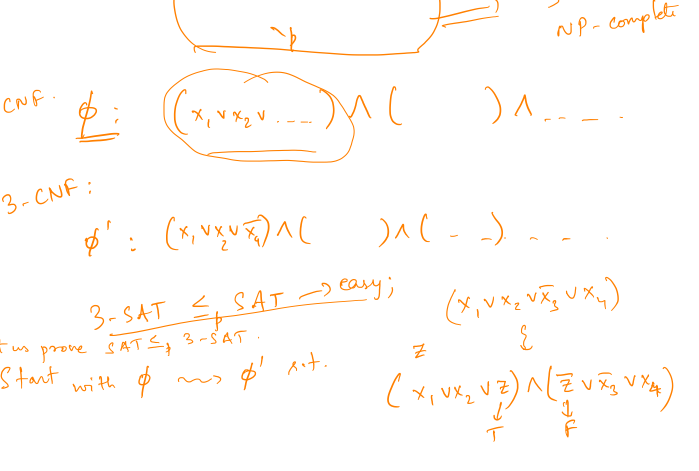 p
NP-complete
CNF.
ϕ : (x₁ ∨ x₂ ∨ ....) ∧ (        ) ∧ .....
3-CNF :
ϕ' : (x₁ ∨ x₂ ∨ x̄₄) ∧ (        ) ∧ ( - - ). - - .
3-SAT ≤ₚ SAT → easy;
us prove SAT ≤ₚ 3-SAT.
Start with ϕ ⇝ ϕ' s.t.
(x₁ ∨ x₂ ∨ x̄₃ ∨ x₄)
z
(x₁ ∨ x₂ ∨ z) ∧ (z̄ ∨ x̄₃ ∨ x₄)
T F